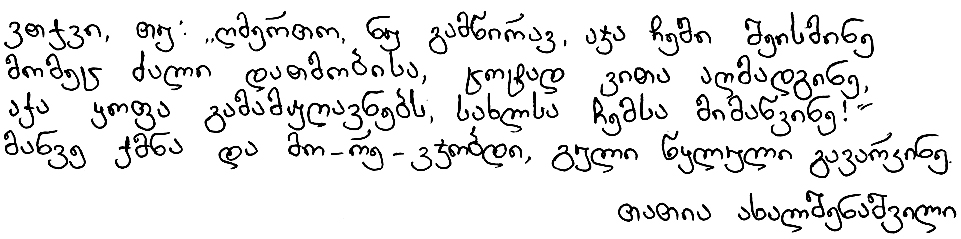 ვთქვი, თუ: „ღმერთო, ნუ გამწირავ, აჯა ჩემი შეისმინე
მომეც ძალი დათმობისა, ცოტად ვითა აღმადგინე,
აქა ყოფა გამამჟღავნებს, სახლსა ჩემსა მიმაწვინე!“
მანვე ქმნა და მო-რე-ვჯობდი, გული წყლული გავარკინე.
თათია ახალშენაშვილი